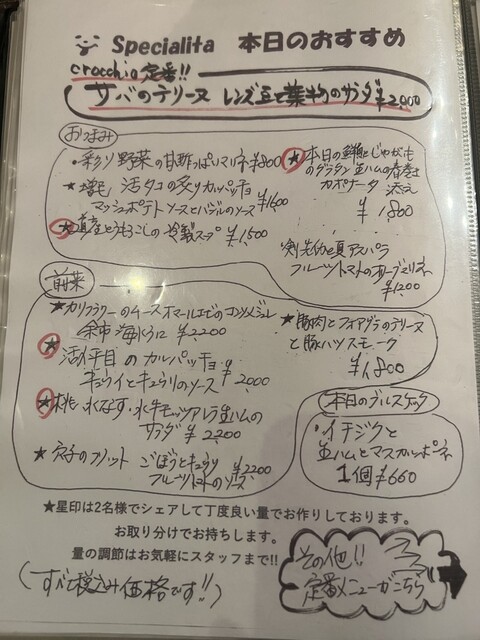 Specialita 本日のおすすめ
crocchio定番!!
サバのテリーヌ レンズ豆と葉物のサラダ ¥2,000
おつまみ
・彩り野菜の甘酢っぱいマリネ ¥800
★ 活タコの炙りカルパッチョ
マッシュポテトソースとバジルのソース ¥1,600
★道産とうもろこしの冷製スープ ¥1,500
★本日の鮮魚とじゃがいも
のグラタン 生ハムの春巻
カポナータ 添え
¥1,800
アスパラ
フルーツトマトのハーブマリネ
¥1,200
前菜
★カリフラワーのムース オマールエビのコンソメジュレ
余市 海水うに ¥2,200
★活〆平目のカルパッチョ
キウイときゅうりのソース ¥2,000
★桃・水なす・水牛モッツァレラ 生ハムの
サラダ ¥2,200
★穴子のフリット ごぼうときゅうり
フルーツトマトのソース ¥2,200
★豚肉とフォアグラのテリーヌ
と豚ハツスモーク
¥1,800
本日のブルスケッタ
・イチジクと
生ハムとマスカルポーネ
1個 ¥660
★星印は2名様でシェアして丁度良い量でお作りしております。
お取り分けでお持ちします。
量の調節はお気軽にスタッフまで!!
(すべて税込み価格です!!)
その他!!
定番メニューがこちら